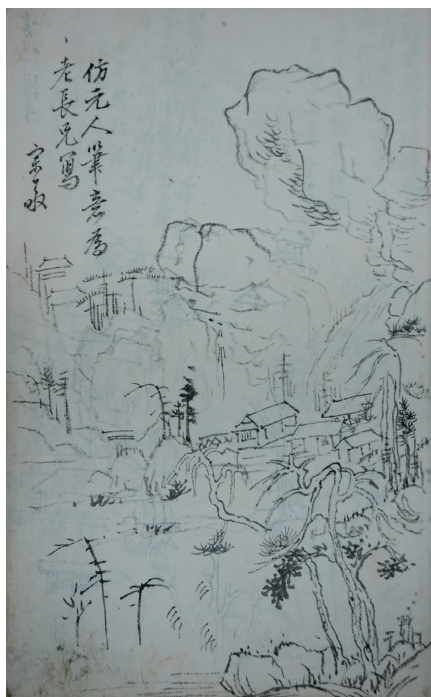 仿元人筆意為
丶老長兄寫
宗敬